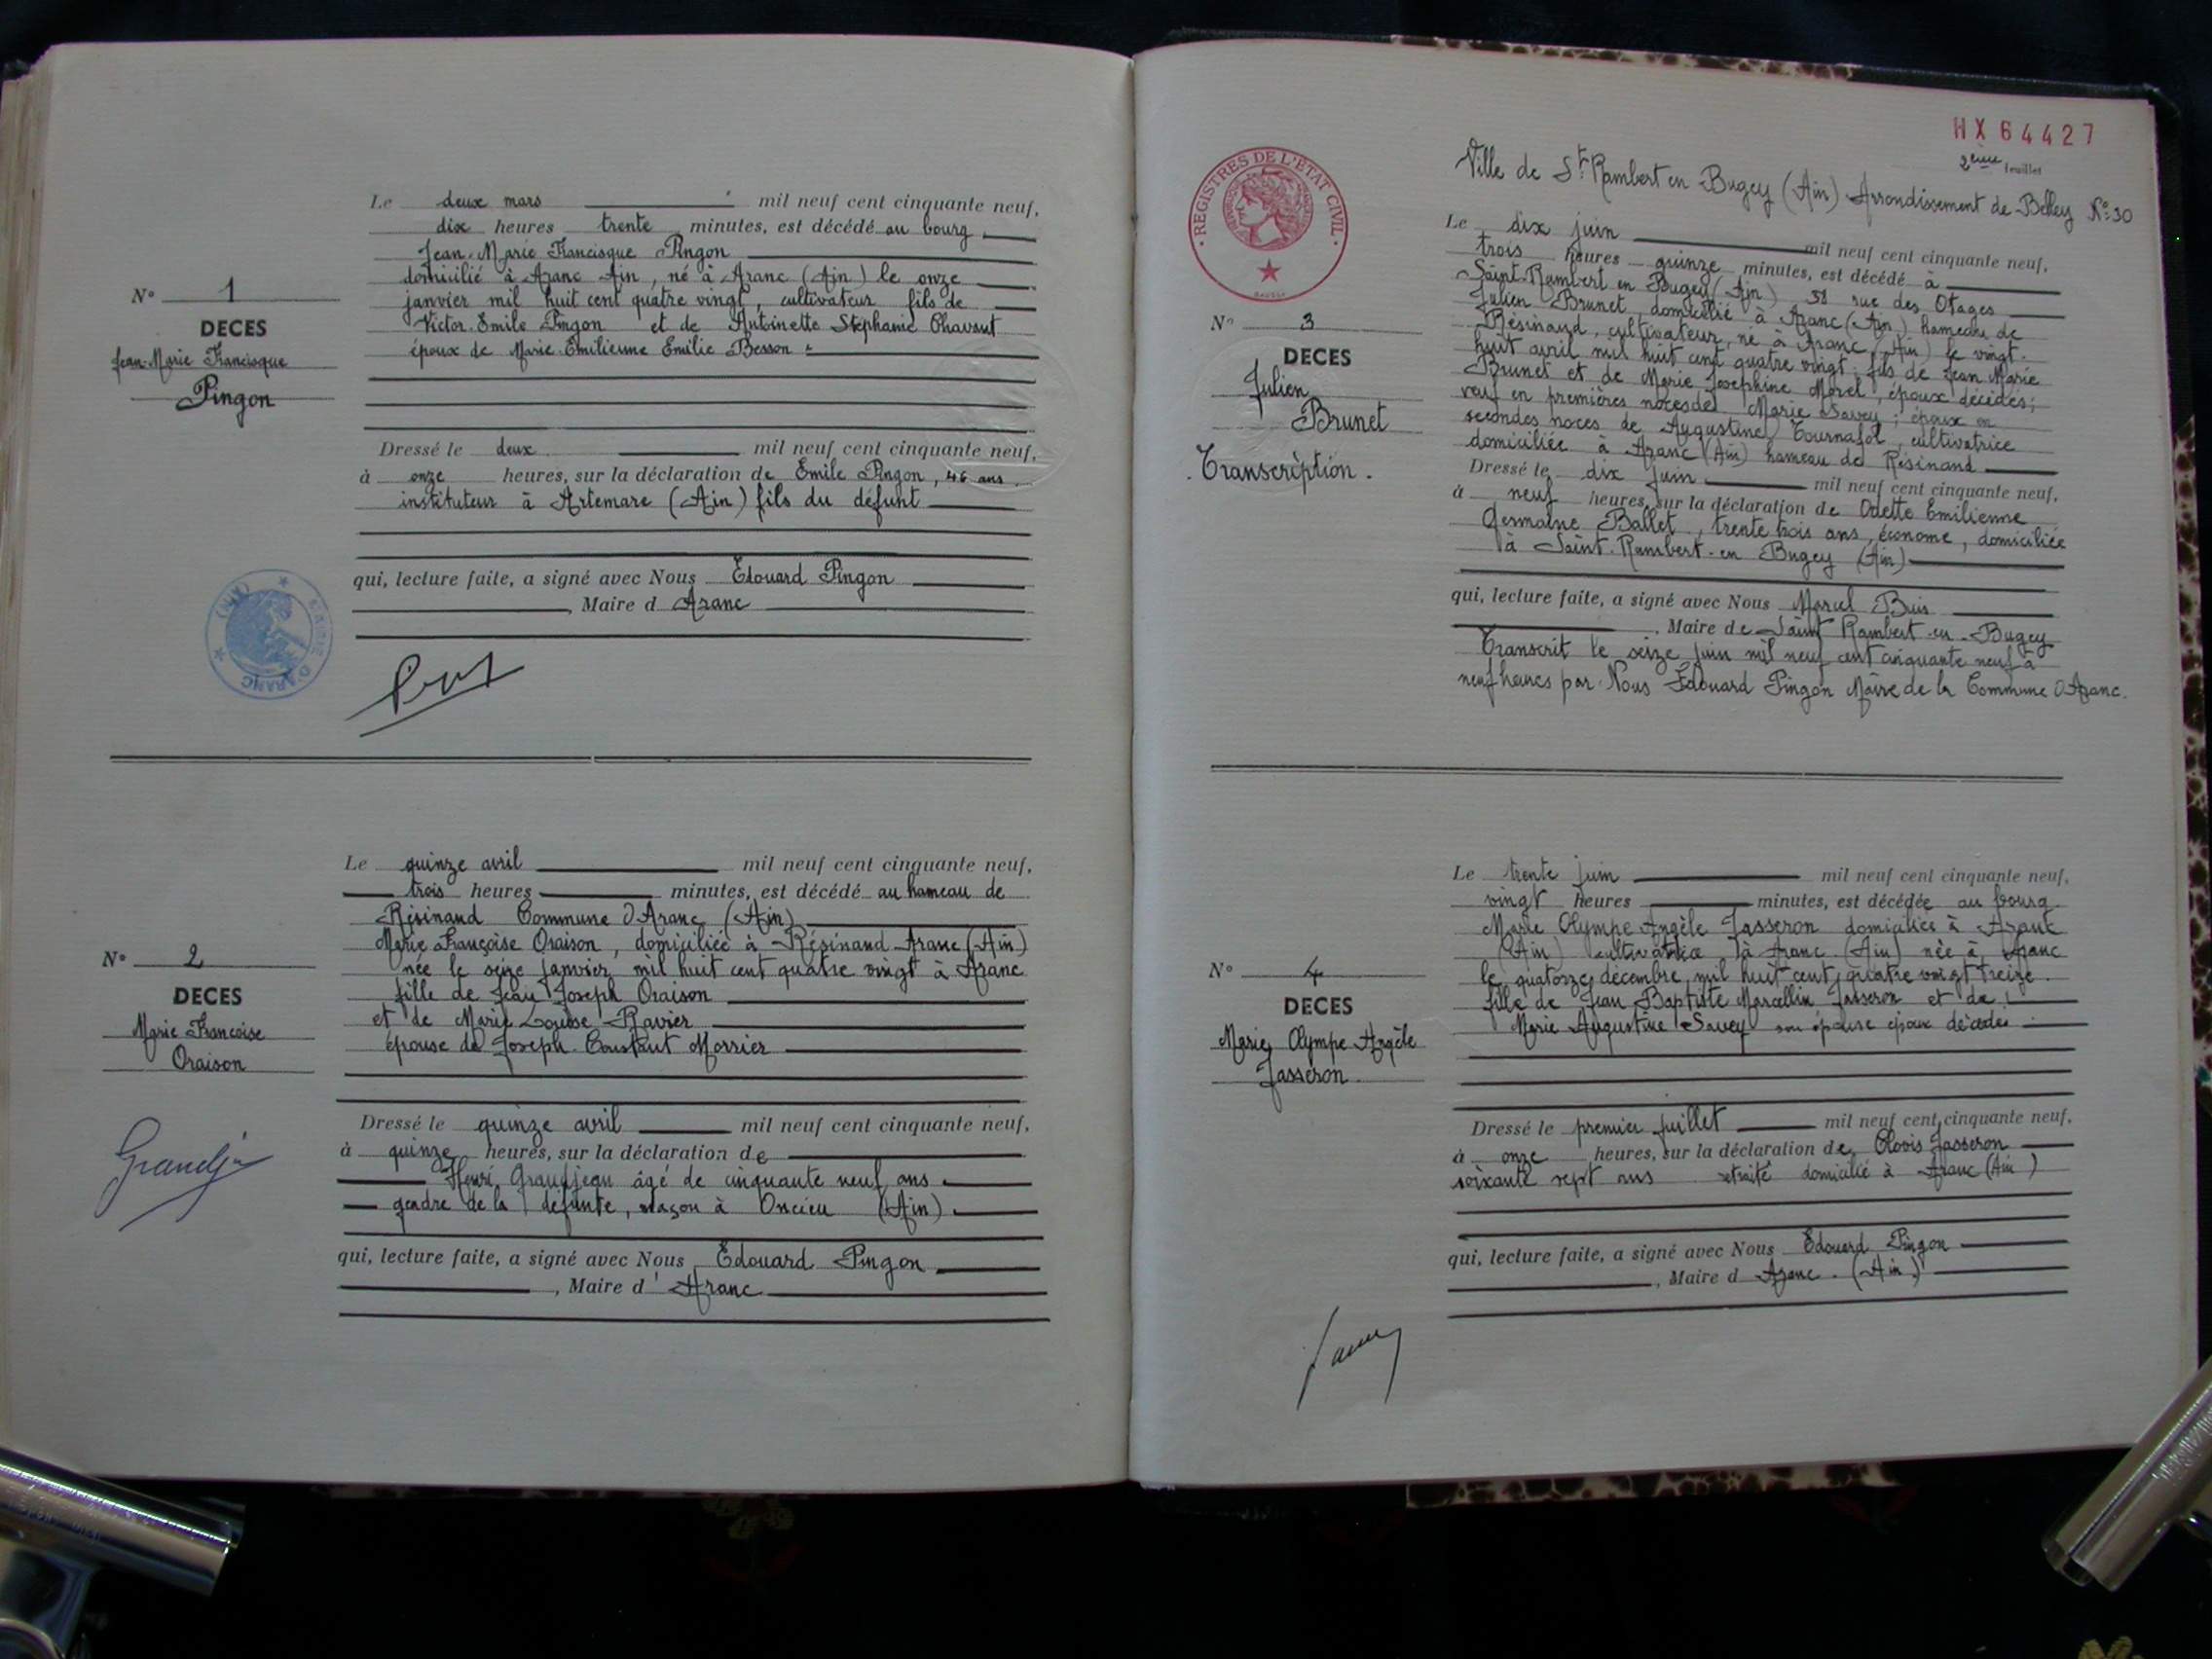 Le deux mars mil neuf cent cinquante neuf,
dix heures trente minutes, est décédé au bourg
Jean-Marie Francisque Pingon
domicilié à Aranc Ain, né à Aranc (Ain) le onze
janvier mil huit cent quatre vingt, cultivateur fils de
Victor Emile Pingon et de Antoinette Stéphanie Chavant
époux de Marie-Emilienne Emilie Besson
N° 1
DECES
Jean-Marie Francisque
Pingon
Dressé le deux mil neuf cent cinquante neuf,
à onze heures, sur la déclaration de Emile Pingon, 46 ans
instituteur à Artemare (Ain) fils du défunt
qui, lecture faite, a signé avec Nous Edouard Pingon
, Maire d Aranc
MAIRIE D'ARANC (AIN)
Le quinze avril mil neuf cent cinquante neuf,
trois heures minutes, est décédé au hameau de
Résinand Commune d'Aranc (Ain)
Marie Françoise Oraison, domiciliée à Résinand-Aranc (Ain)
née le seize janvier mil huit cent quatre vingt à Aranc
fille de Jean Joseph Oraison
et de Marie Louise Ravier
épouse de Joseph Constant Morrier
N° 2
DECES
Marie Françoise
Oraison
Dressé le quinze avril mil neuf cent cinquante neuf,
à quinze heures, sur la déclaration de
Henri Grandjean âgé de cinquante neuf ans
gendre de la défunte, maçon à Oncieu (Ain).
qui, lecture faite, a signé avec Nous Edouard Pingon
, Maire d' Aranc
Grandj
HX 64427
2ème feuillet
REGISTRES DE L'ÉTAT CIVIL
Ville de St Rambert en Bugey (Ain) Arrondissement de Belley N° 30
Le dix juin mil neuf cent cinquante neuf,
trois heures quinze minutes, est décédé à
Saint-Rambert en Bugey (Ain) 58 rue des Otages
Julien Brunet, domicilié à Aranc (Ain) hameau de
Résinand, cultivateur, né à Aranc (Ain) le vingt-
huit avril mil huit cent quatre vingt, fils de Jean Marie
Brunet et de Marie Joséphine Morel, époux décédés;
veuf en premières noces de Marie Savey; époux en
secondes noces de Augustine Tournafol, cultivatrice
domiciliée à Aranc (Ain) hameau de Résinand
N° 3
DECES
Julien
Brunet
Transcription.
Dressé le dix juin mil neuf cent cinquante neuf,
à neuf heures, sur la déclaration de Odette Emilienne
Germaine Ballet, trente trois ans, économe, domiciliée
à Saint-Rambert-en Bugey (Ain)
qui, lecture faite, a signé avec Nous Marcel Buis
, Maire de Saint Rambert-en-Bugey
Transcrit le seize juin mil neuf cent cinquante neuf à
neuf heures par Nous Edouard Pingon Maire de la Commune d'Aranc.
Le trente juin mil neuf cent cinquante neuf,
vingt heures minutes, est décédée au bourg
Marie Olympe Angèle Jasseron domiciliée à Aranc
(Ain) cultivatrice à Aranc (Ain) née à Aranc
le quatorze décembre mil huit cent quatre vingt treize
fille de Jean Baptiste Marcellin Jasseron et de
Marie Augustine Savey son épouse époux décédés
N° 4
DECES
Marie Olympe Angèle
Jasseron
Dressé le premier juillet mil neuf cent cinquante neuf,
à onze heures, sur la déclaration de Clovis Jasseron
soixante sept ans retraité domicilié à Aranc (Ain)
qui, lecture faite, a signé avec Nous Edouard Pingon
, Maire d Aranc. (Ain)